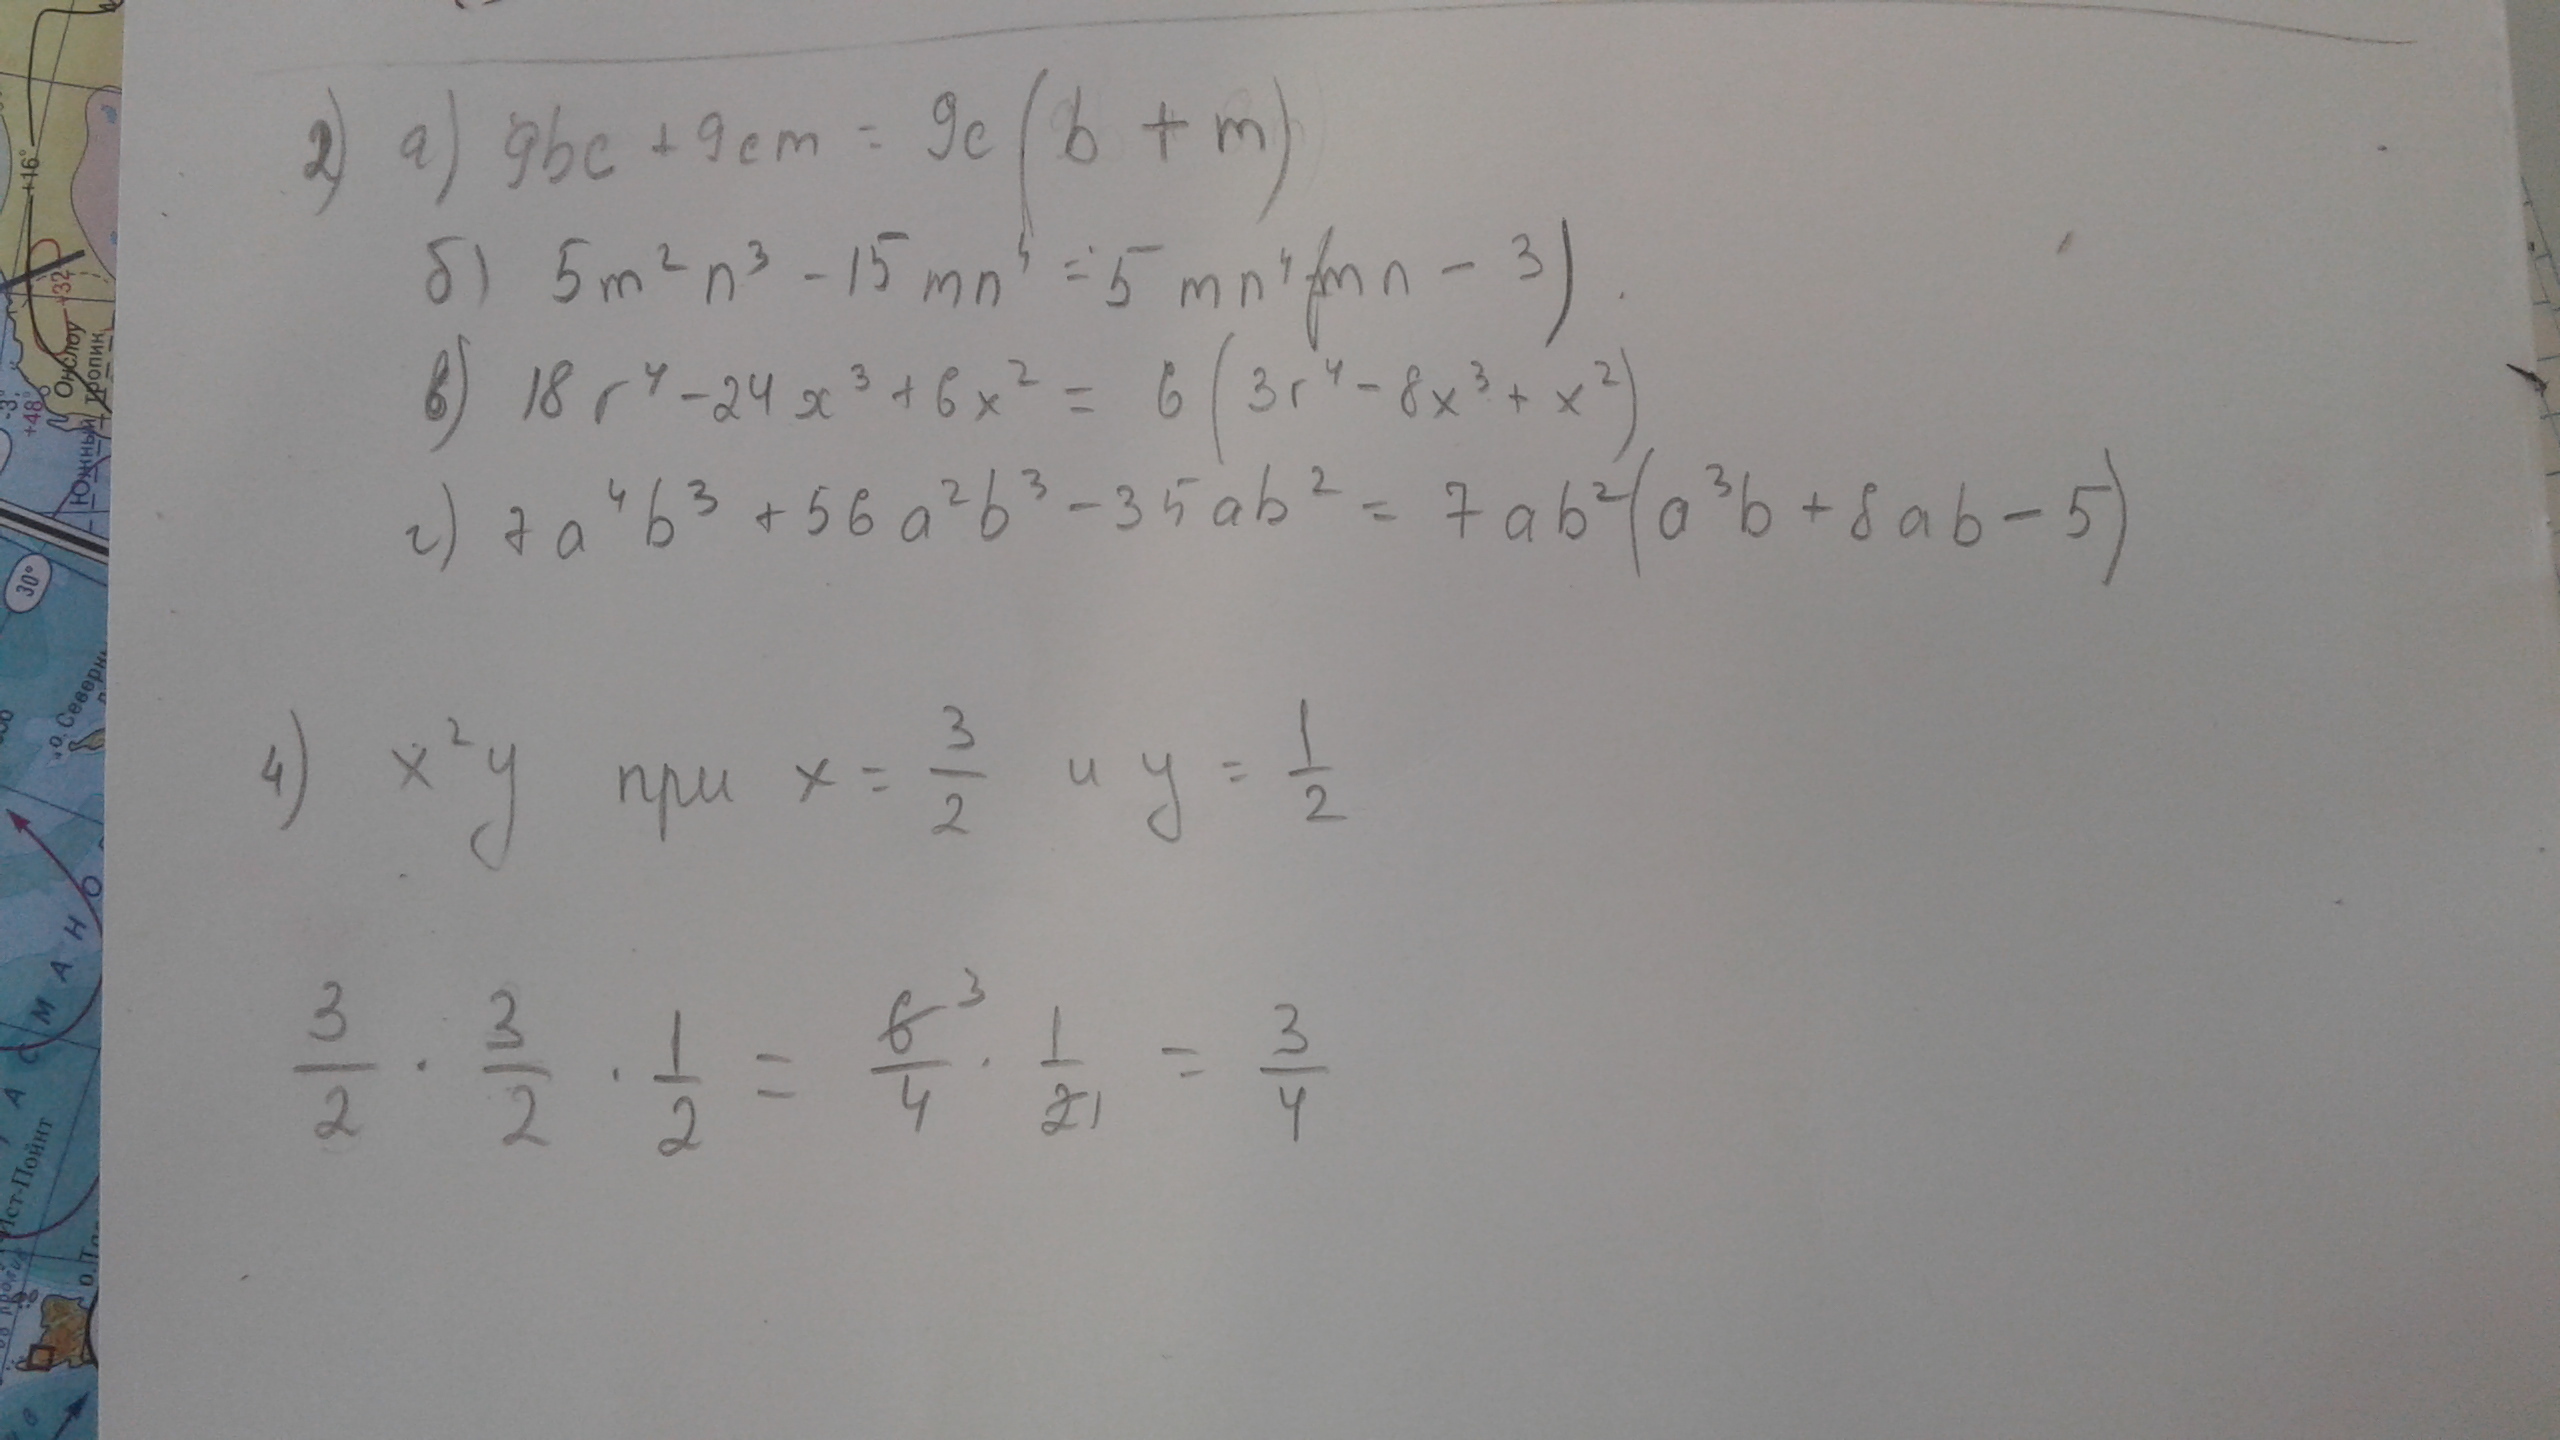 2) а) 9bc + 9cm = 9c (b + m)
б) 5m²n³ - 15mn⁴ = 5mn⁴(mn - 3).
в) 18r⁴ - 24x³ + 6x² = 6(3r⁴ - 8x³ + x²)
г) 7a⁴b³ + 56a²b³ - 35ab² = 7ab²(a³b + 8ab - 5)
4) x²y при x = 3/2 и y = 1/2
3/2 · 3/2 · 1/2 = 6 3/4 · 1/2 1 = 3/4
+16°
+32
Онслоу
тропик
Южный
-3°
+48°
30°
о.Северн
О
Н
А
М
С
А
Ист-Пойнт